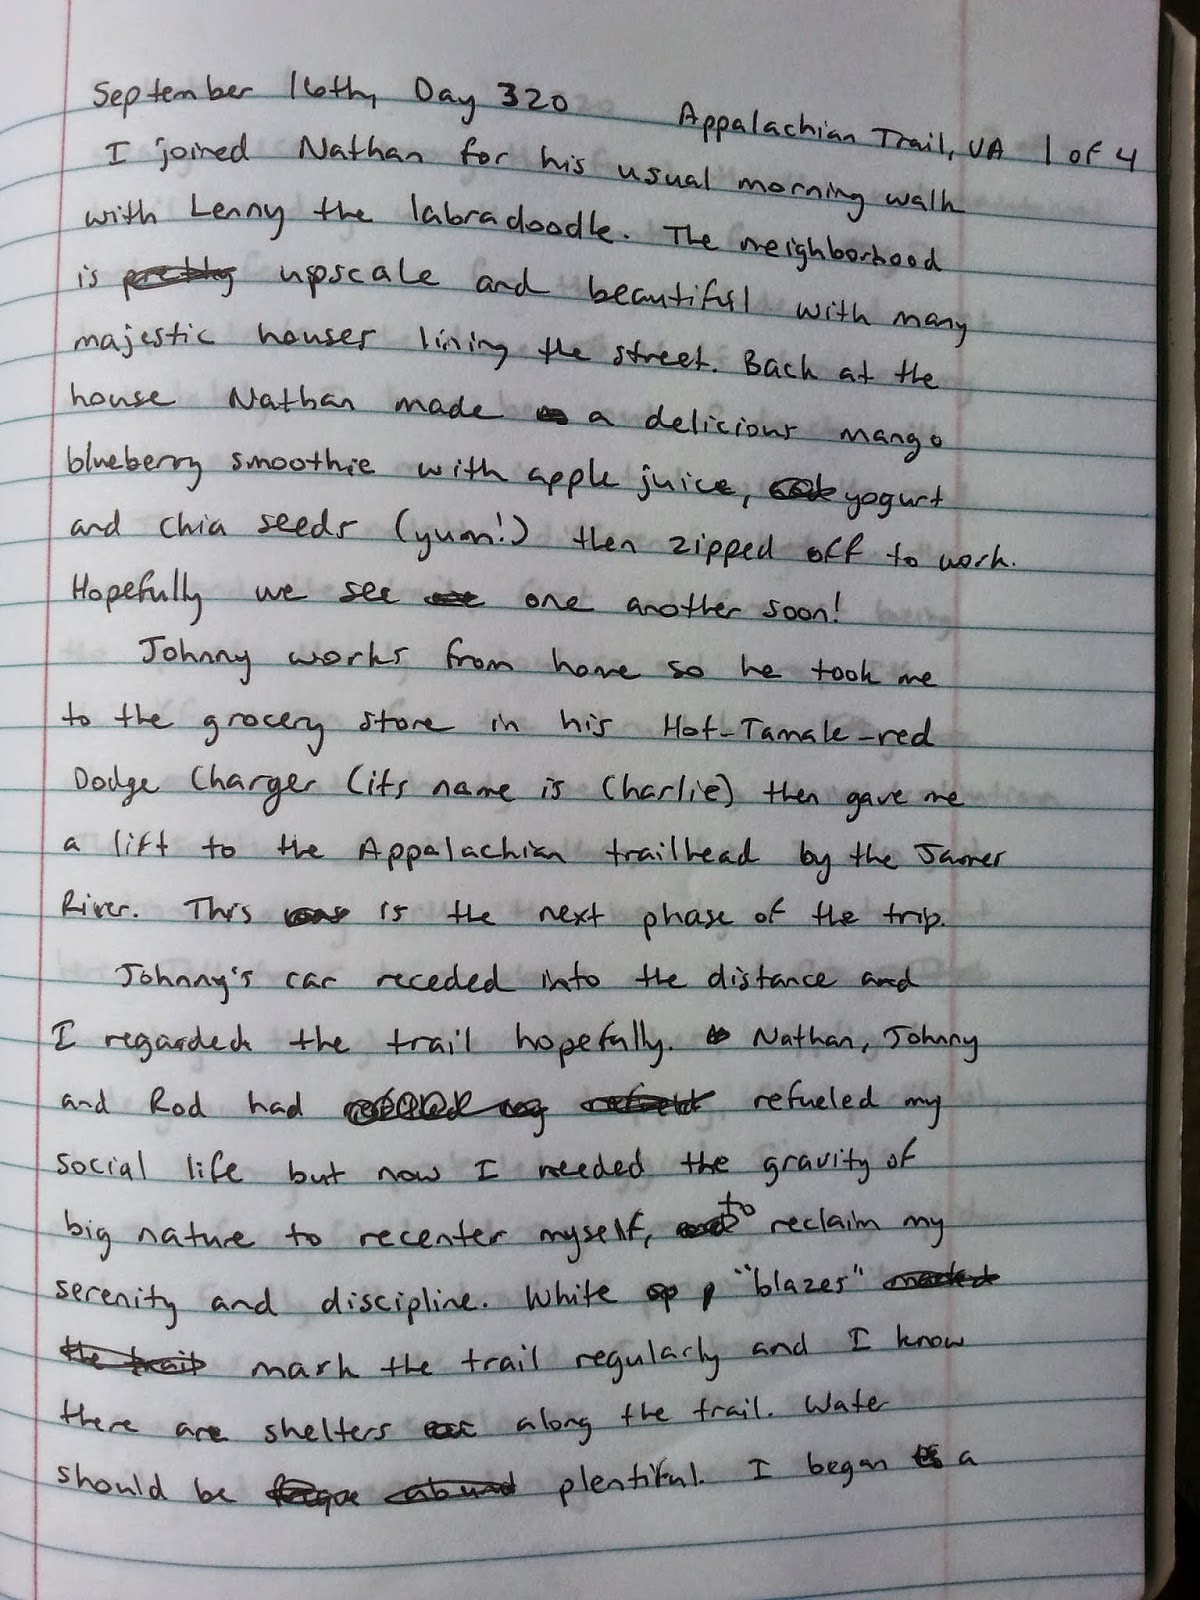 September 16th, Day 320 Appalachian Trail, VA 1 of 4
I joined Nathan for his usual morning walk
with Lenny the labradoodle. The neighborhood
is pretty upscale and beautiful with many
majestic houses lining the street. Back at the
house Nathan made a delicious mango
blueberry smoothie with apple juice, yogurt
and chia seeds (yum!) then zipped off to work.
Hopefully we see one another soon!
Johnny works from home so he took me
to the grocery store in his Hot-Tamale-red
Dodge Charger (its name is Charlie) then gave me
a lift to the Appalachian trailhead by the James
River. This was is the next phase of the trip.
Johnny's car receded into the distance and
I regarded the trail hopefully. Nathan, Johnny
and Rod had refueled my
social life but now I needed the gravity of
big nature to recenter myself, to reclaim my
serenity and discipline. White "blazes" marked
the trail mark the trail regularly and I know
there are shelters along the trail. Water
should be plentiful. I began a